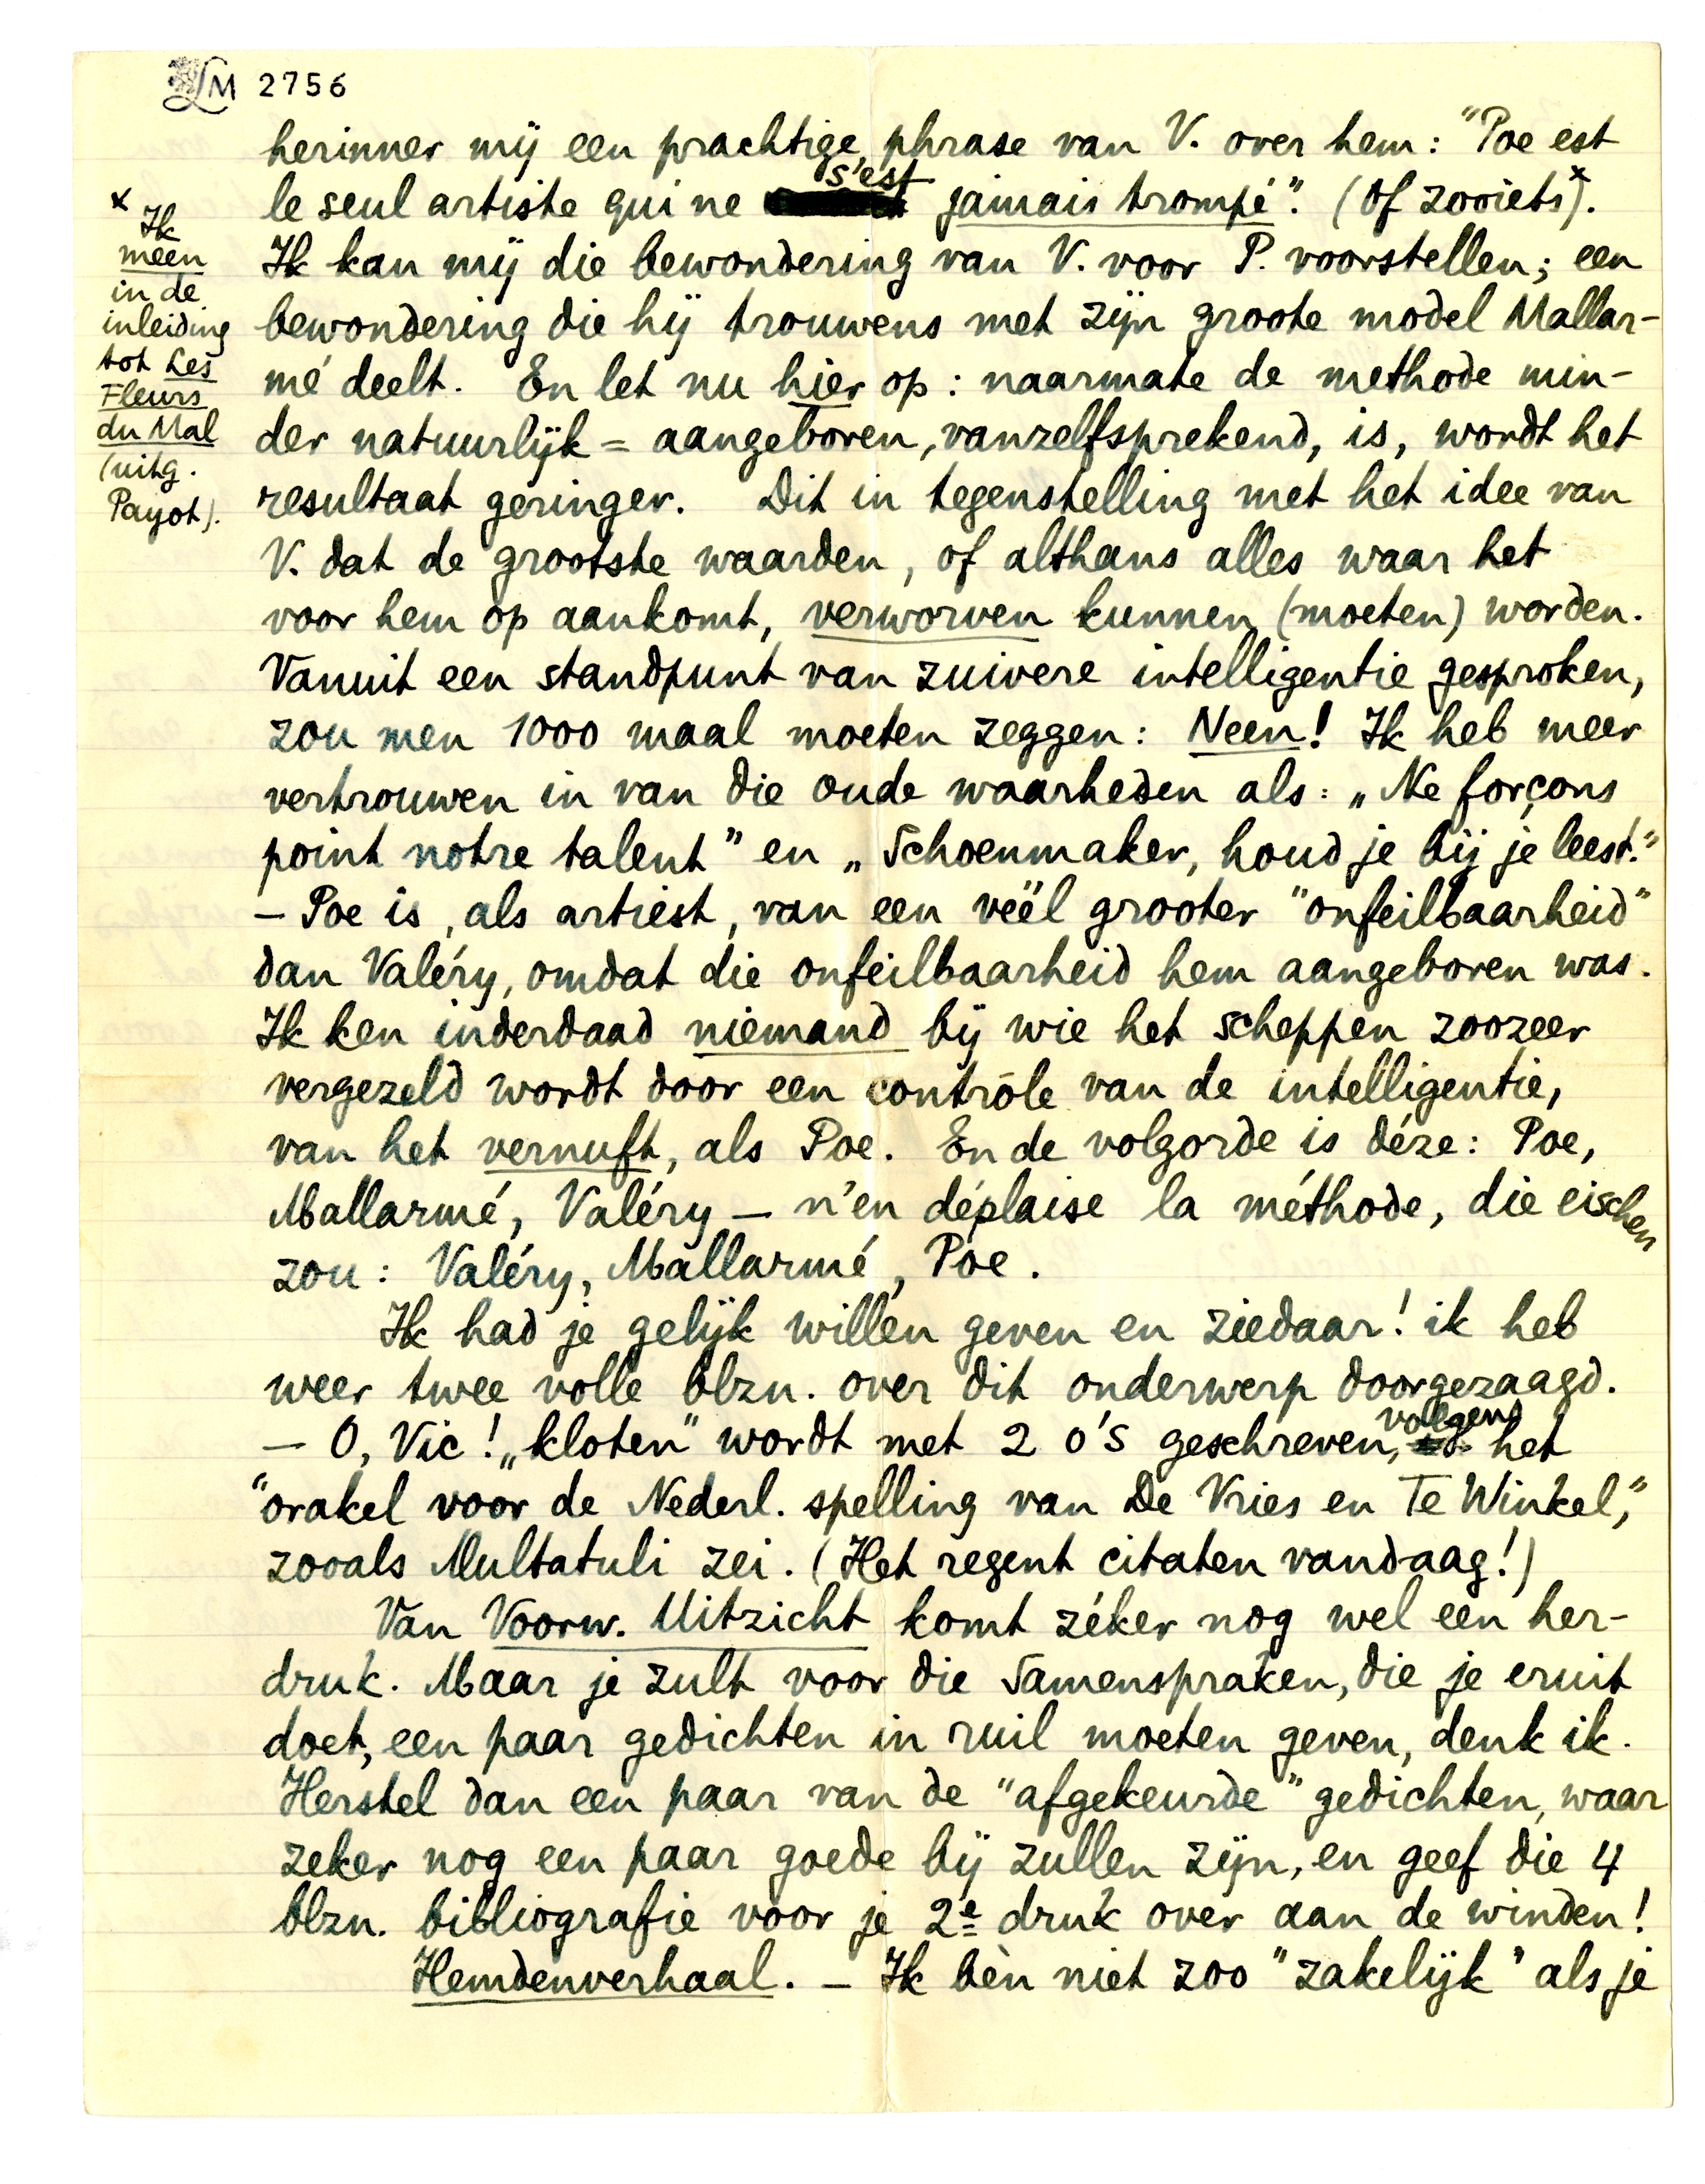 LM 2756
herinner mij een prachtige phrase van V. over hem: "Poe est
le seul artiste qui ne s'est jamais trompé". (Of zooiets x).
x Ik
meen
in de
inleiding
tot Les
Fleurs
du Mal
(uitg.
Payot).
Ik kan mij die bewondering van V. voor P. voorstellen; een
bewondering die hij trouwens met zijn groote model Mallar-
mé deelt. En let nu hier op: naarmate de methode min-
der natuurlijk = aangeboren, vanzelfsprekend, is, wordt het
resultaat geringer. Dit in tegenstelling met het idee van
V. dat de grootste waarden, of althans alles waar het
voor hem op aankomt, verworven kunnen (moeten) worden.
Vanuit een standpunt van zuivere intelligentie gesproken,
zou men 1000 maal moeten zeggen: Neen! Ik heb meer
vertrouwen in van die oude waarheden als: „Ne forçons
point notre talent" en „Schoenmaker, houd je bij je leest."
— Poe is, als artiest, van een veël grooter "onfeilbaarheid"
dan Valéry, omdat die onfeilbaarheid hem aangeboren was.
Ik ken inderdaad niemand bij wie het scheppen zoozeer
vergezeld wordt door een contrôle van de intelligentie,
van het vernuft, als Poe. En de volgorde is déze: Poe,
Mallarmé, Valéry — n'en déplaise la méthode, die eischen
zou: Valéry, Mallarmé, Poe.
Ik had je gelijk willen geven en ziedaar! ik heb
weer twee volle blzn. over dit onderwerp doorgezaagd.
— O, Vic! „kloten" wordt met 2 o's geschreven, volgens het
"orakel voor de Nederl. spelling van De Vries en Te Winkel,"
zooals Multatuli zei. (Het regent citaten vandaag!)
Van Voorw. Uitzicht komt zéker nog wel een her-
druk. Maar je zult voor die Samenspraken, die je eruit
doet, een paar gedichten in ruil moeten geven, denk ik.
Herstel dan een paar van de "afgekeurde" gedichten, waar
zeker nog een paar goede bij zullen zijn, en geef die 4
blzn. bibliografie voor je 2e druk over aan de winden!
Hemdenverhaal. — Ik bèn niet zoo "zakelijk" als je